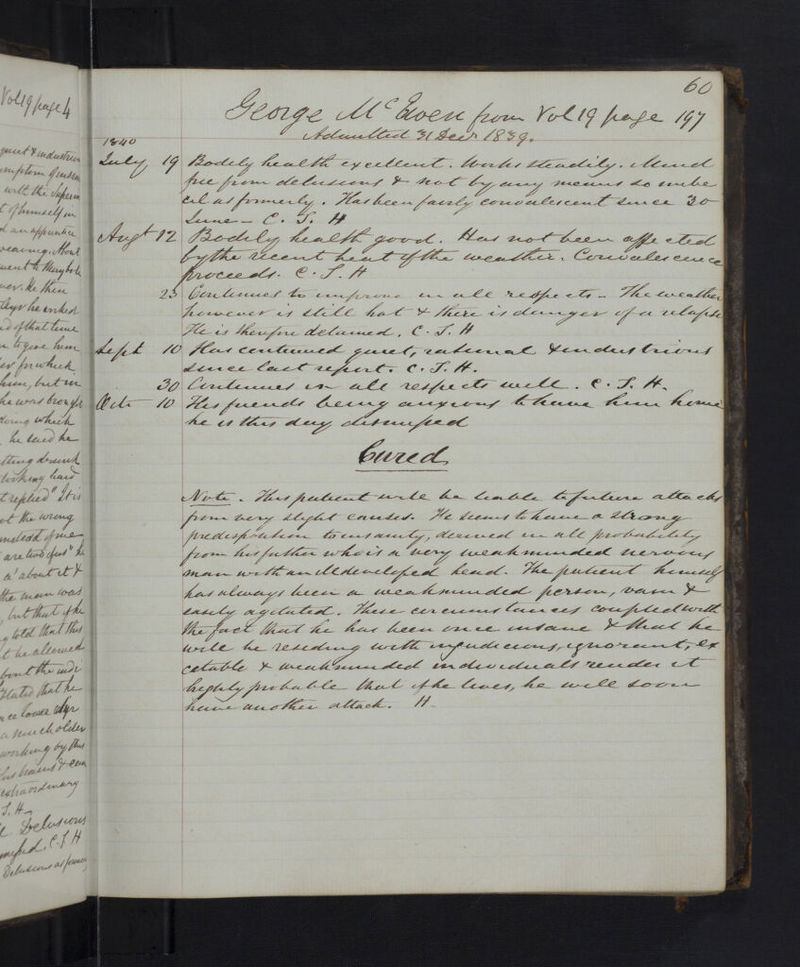 Vol 19 page 4
quiet & industrious
symptom of
with the
of himself in
an apprentice
weaving. About
went to
he then
days he worked
of that time
to give him
for which
him, but in
he was brought
doing which
he said he
getting drunk
looking hard
replied "It is
the wrong
instead of me
are two of us" he
a' about it &
the man was
, but that if he
told that this
he allowed
about the
Stated that he
a much older
working by the
extraordinary
J. H.
Delusions
C. J. H
Delusions as
60
George McEwen from Vol 19 page 197
Admitted 31 Decr 1839.
1840
July 19 Bodily health excellent. Works steadily. Mind
free from delusions & not by any means so imbe
cil as formerly. Has been fairly convalescent since 30
June - C. J. H
Augt 12 Bodily health good. Has not been affected
by the recent heat of the weather. Convalescence
proceeds. C. J. H
23 Continues to improve in all respects - The weather
however is still hot & there is danger of a relapse
He is therefore detained. C. J. H
Sept 10 Has continued quiet, rational & industrious
since last report. C. J. H.
30 Continues in all respects well. C. J. H.
Octr 10 His friends being anxious to have him home
he is this day dismissed
Cured
Note. This patient will be liable to future attacks
from very slight causes. He seems to have a strong
predisposition to insanity, derived in all probability
from his father who is a very weak minded nervous
man with an ill developed head. The patient himself
has always been a weak minded person, vain &
easily agitated. These circumstances coupled with
the fact that he has been once insane & that he
will be residing with injudicious, ignorant, ex
citable & weak minded individuals render it
highly probable that if he lives, he will soon
have another attack. H.